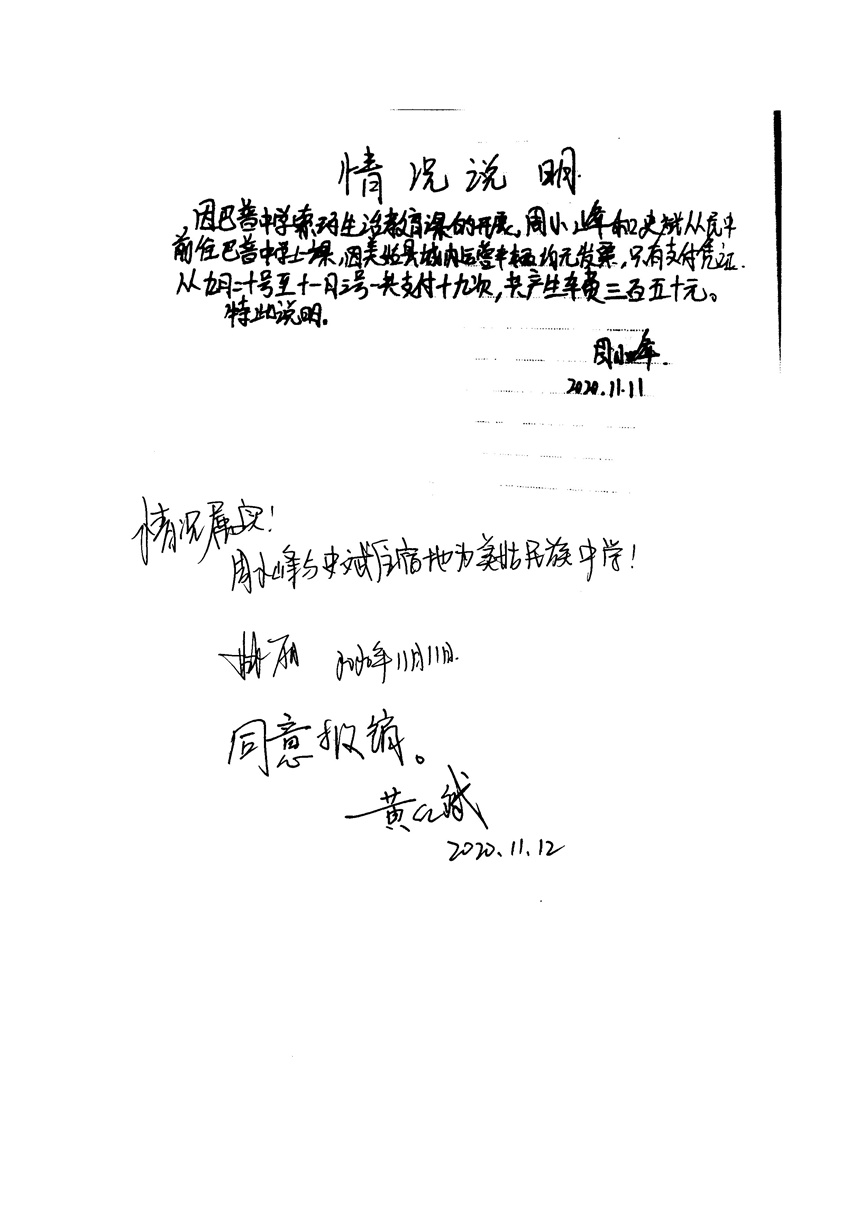 情况说明
因巴普中学索玛生活教育课的开展,周小峰和史斌从民中
前往巴普中学上课,因美姑县城内运营车辆均无发票,只有支付凭证.
从九月二十号至十一月三号一共支付十九次,共产生车费三百五十元。
特此说明.
周小峰.
2020.11.11
情况属实!
周小峰与史斌住宿地为美姑民族中学!
2020年11月11日.
同意报销。
黄 斌
2020.11.12